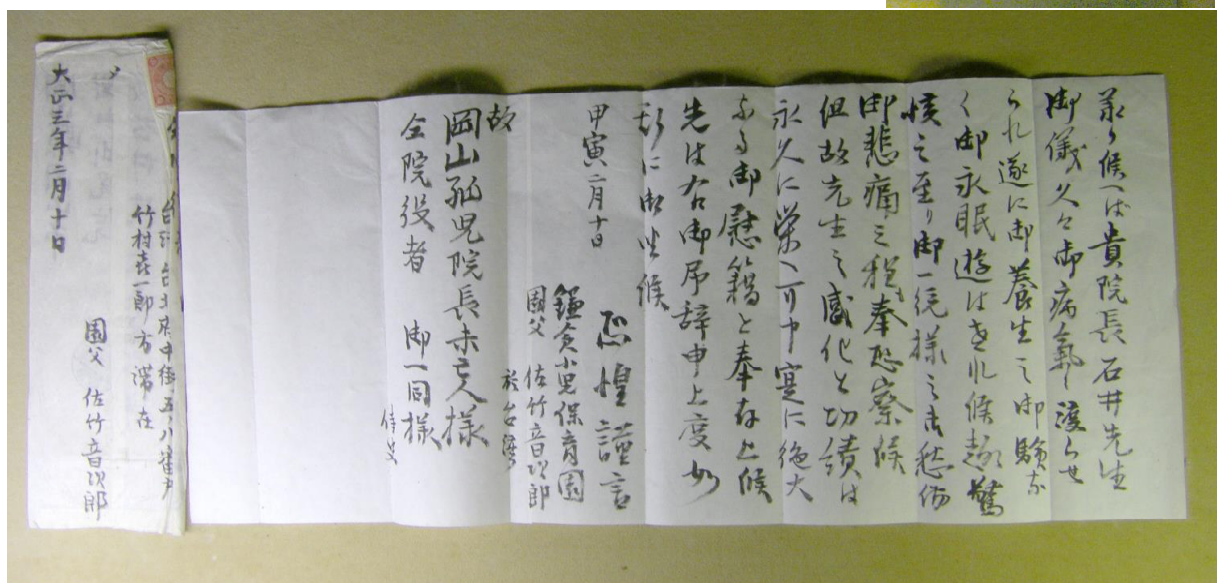 承り候へば貴院長石井先生
御儀久々御病氣に渡らせ
られ遂に御養生之御験な
く御永眠遊はされ候趣驚
駭之至り御一統様之御愁傷
御悲痛之程奉恐察候
但故先生之感化と功績は
永久に栄へ可申寔に絶大
なる御慰籍と奉存上候
先は右御吊辞申上度如
斯に御坐候
恐惶謹言
甲寅二月十日
鎌倉小児保育園
園父 佐竹音次郎
於台湾
故
岡山孤児院長未亡人様
仝院役者 御一同様
侍史
台湾台北府中街五ノ八
竹村㐂一郎方滞在
園父 佐竹音次郎
大正三年二月十日